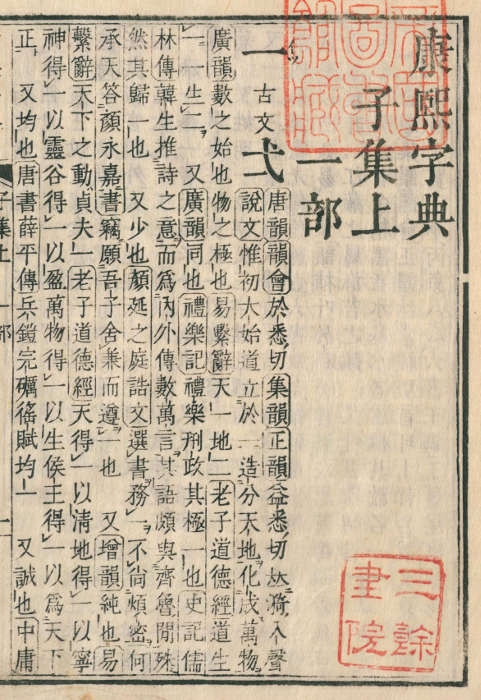 康熙字典
子集上
一部
一 古文弌
唐韻韻會於悉切集韻正韻益悉切𠀤漪入聲
說文惟初大始道立於一造分天地化成萬物
廣韻數之始也物之極也易繫辭天一地二老子道德經道生
一一生二 又廣韻同也禮樂記禮樂刑政其極一也史記儒
林傳韓生推詩之意而爲內外傳數萬言其語頗與齊魯閒殊
然其歸一也 又少也顏延之庭誥文選書務一不尚煩密何
承天答顏永嘉書竊願吾子舍兼而遵一也 又增韻純也易
繫辭天下之動貞夫一老子道德經天得一以清地得一以寧
神得一以靈谷得一以盈萬物得一以生侯王得一以爲天下
正 又均也唐書薛平傳兵鎧完礪徭賦均一 又誠也中庸
子集上 一部 一
三餘
書院